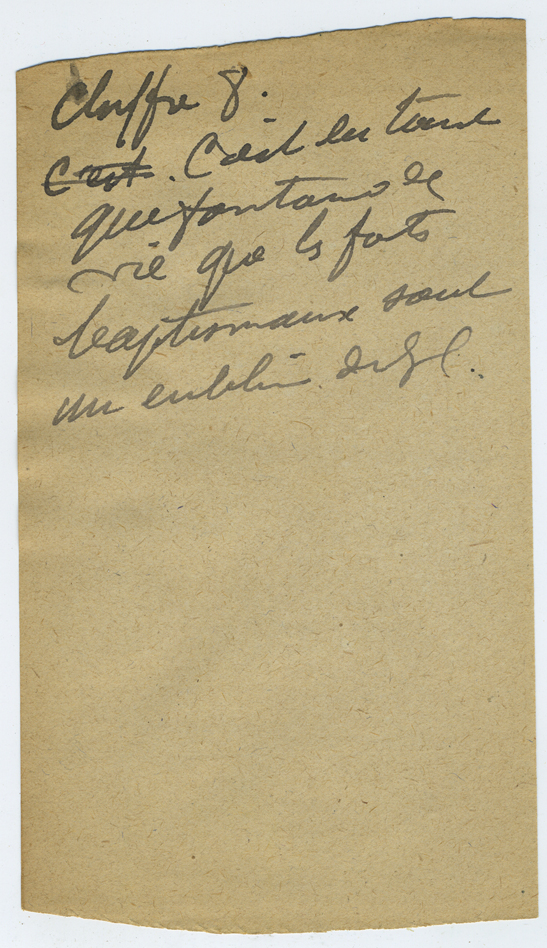 Chiffre 8.
C'est. C'est en tant
que fontaine de
vie que les fonts
baptismaux sont
un emblème de